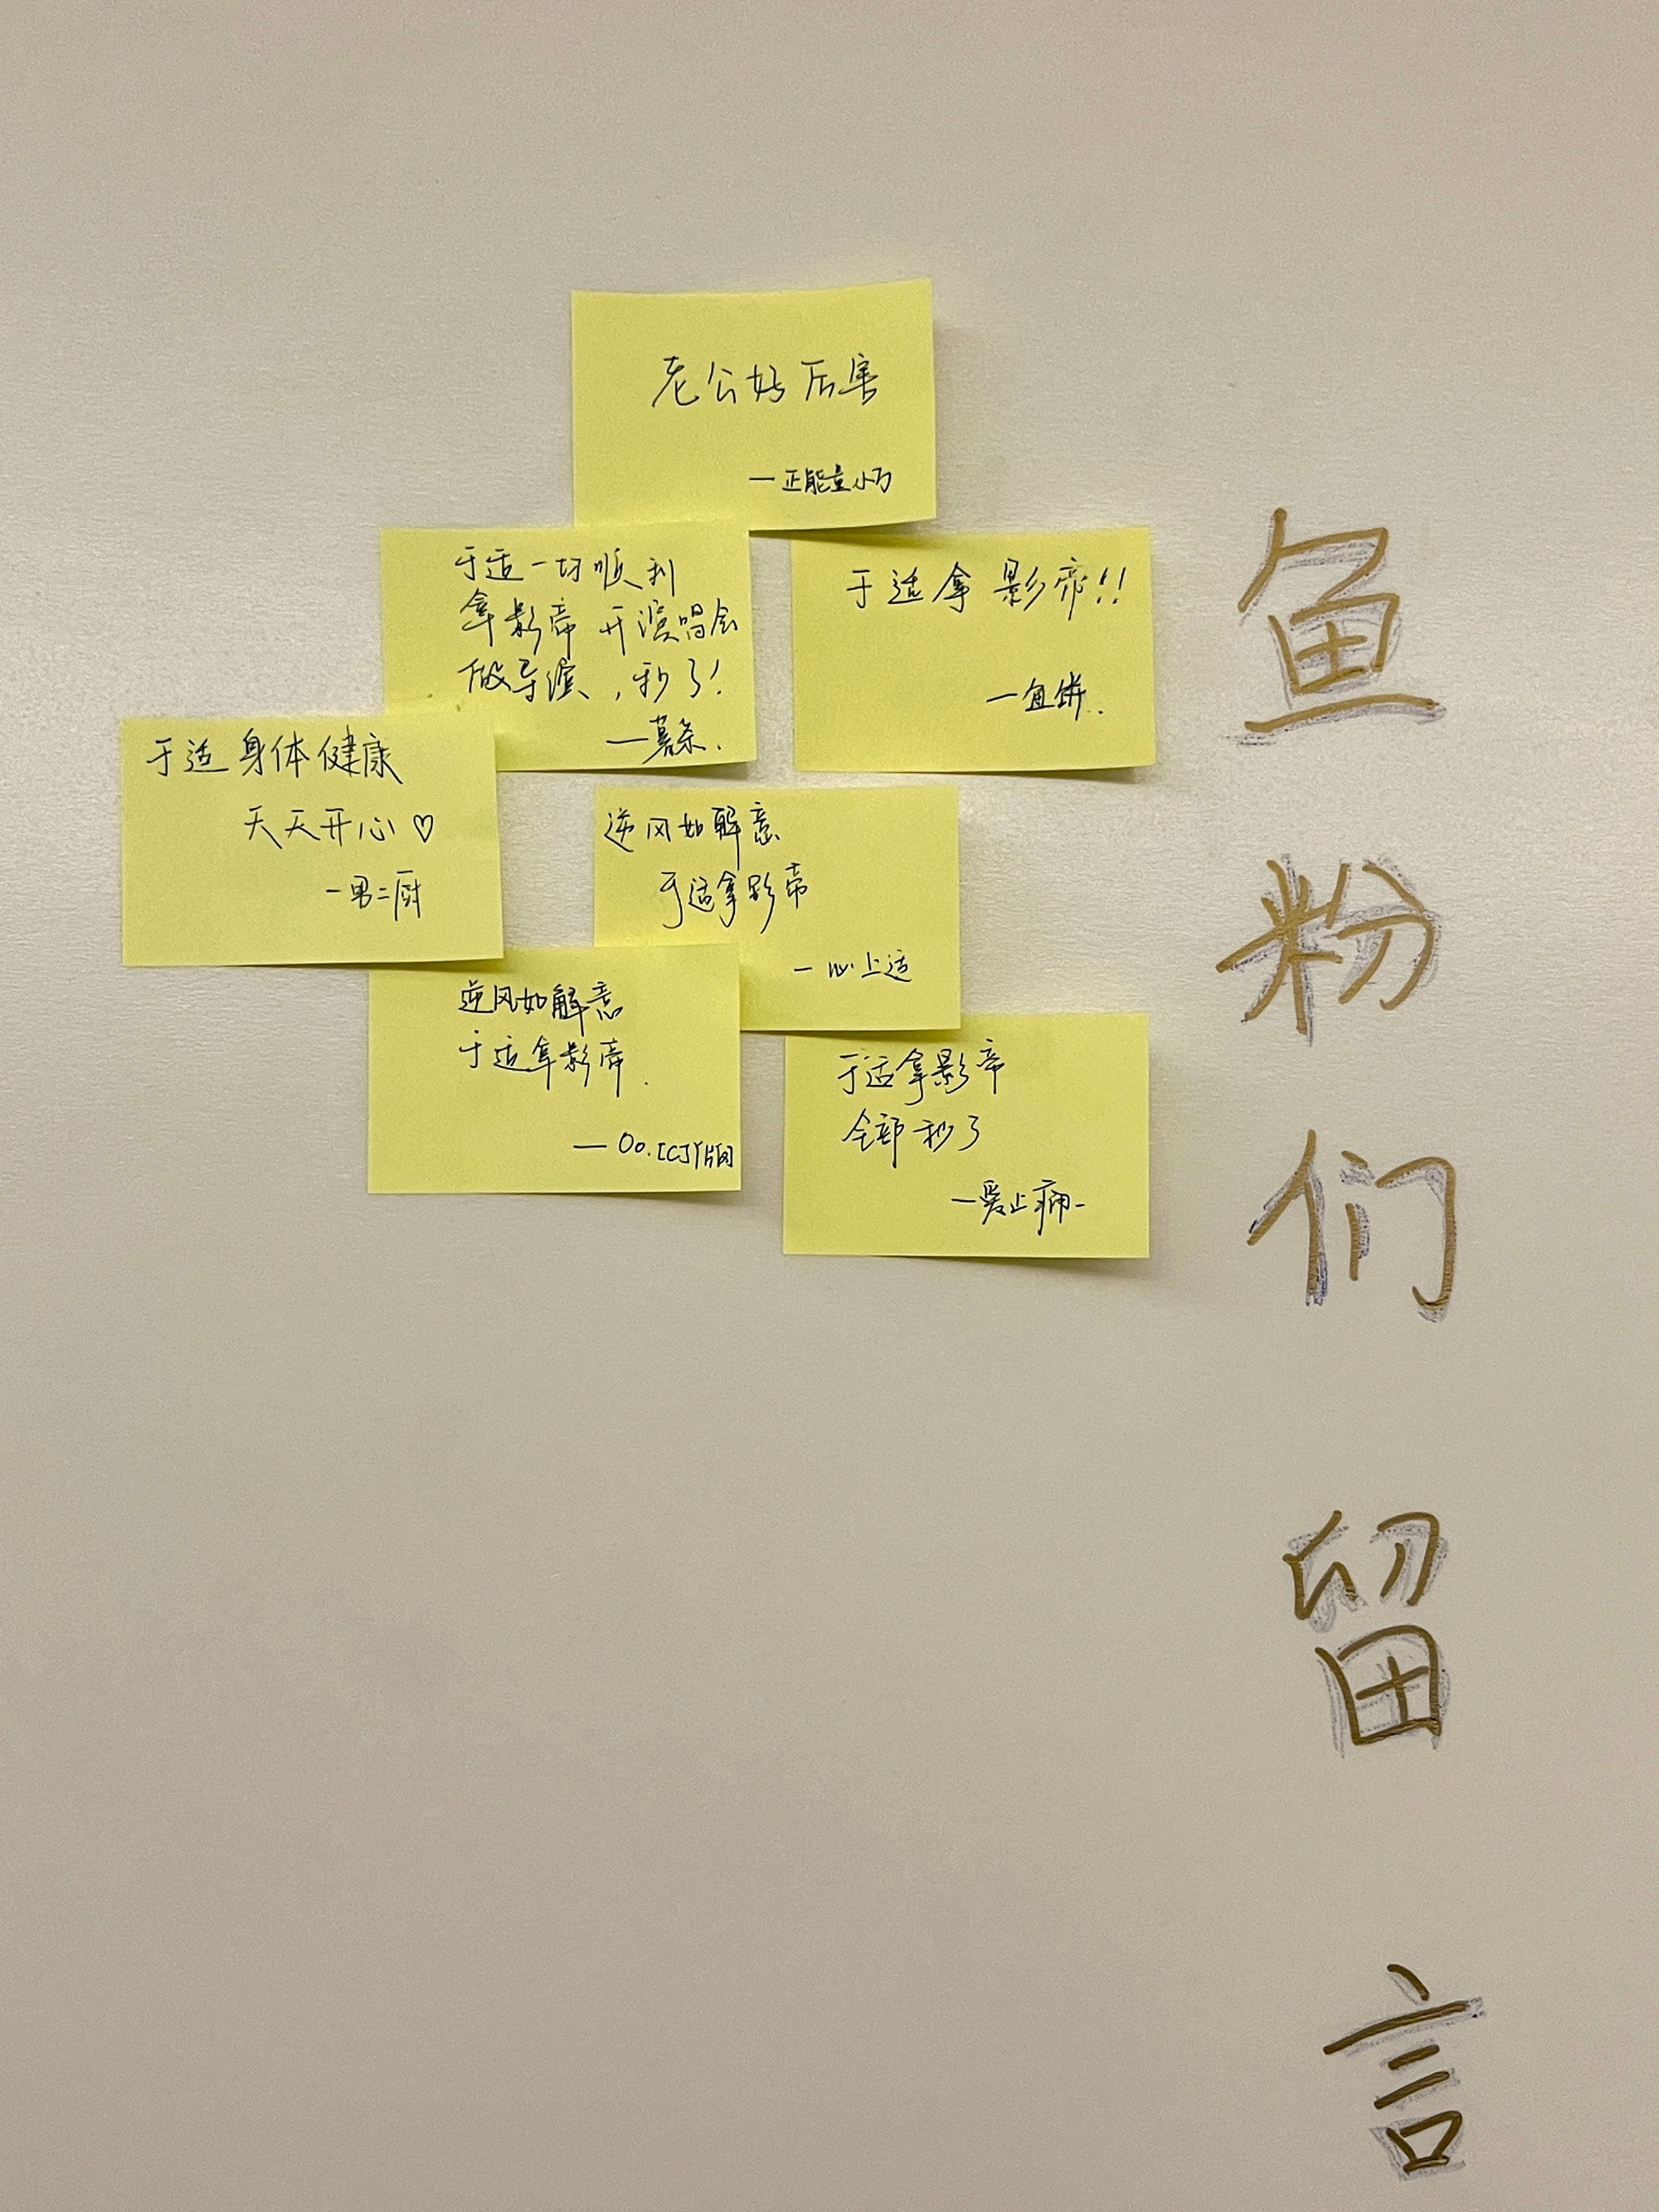 老公好厉害
—正能量小万
于适一切顺利
拿影帝 开演唱会
做导演，秒了！
于适拿影帝!!
—鱼饼..
于适身体健康
天天开心♡
—男二厨
逆风如解意
于适拿影帝
—心上适
逆风如解意
于适拿影帝.
于适拿影帝
全部秒了
—爱止痛-
鱼粉们留言